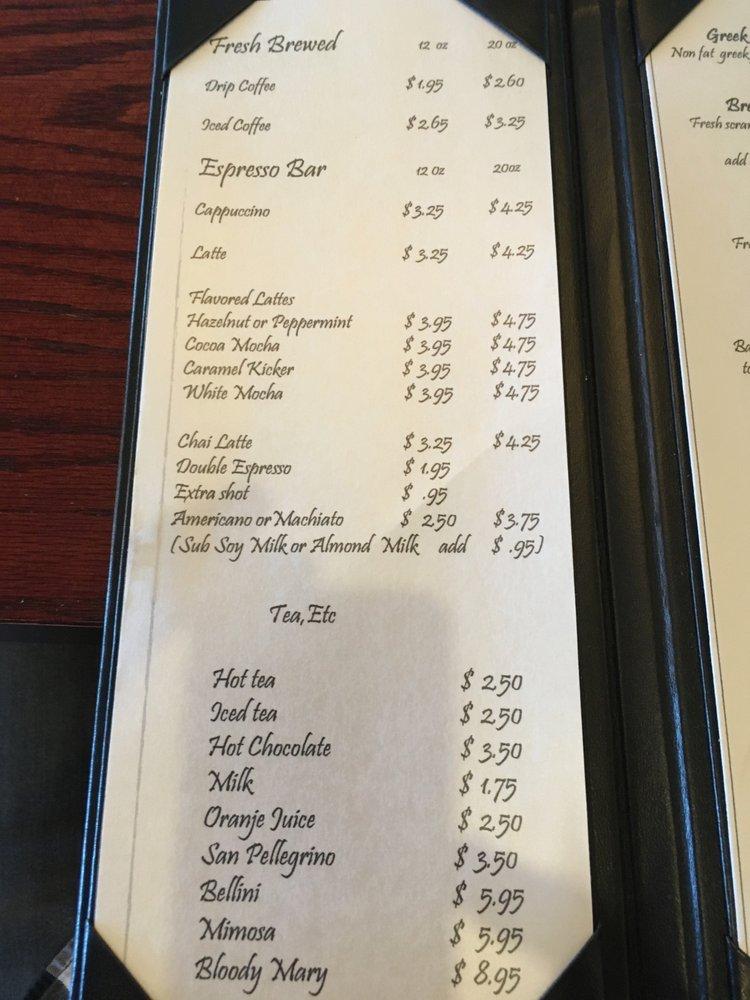 Fresh Brewed 12 oz 20 oz
Drip Coffee $1.95 $2.60
Iced Coffee $2.65 $3.25
Espresso Bar 12 oz 20oz
Cappuccino $3.25 $4.25
Latte $3.25 $4.25
Flavored Lattes
Hazelnut or Peppermint $3.95 $4.75
Cocoa Mocha $3.95 $4.75
Caramel Kicker $3.95 $4.75
White Mocha $3.95 $4.75
Chai Latte $3.25 $4.25
Double Espresso $1.95
Extra shot $ .95
Americano or Machiato $ 2.50 $3.75
(Sub Soy Milk or Almond Milk add $ .95)
Tea, Etc
Hot tea $ 2.50
Iced tea $ 2.50
Hot Chocolate $ 3.50
Milk $ 1.75
Oranje Juice $ 2.50
San Pellegrino $ 3.50
Bellini $ 5.95
Mimosa $ 5.95
Bloody Mary $ 8.95
Greek
Non fat greek
Fresh
add